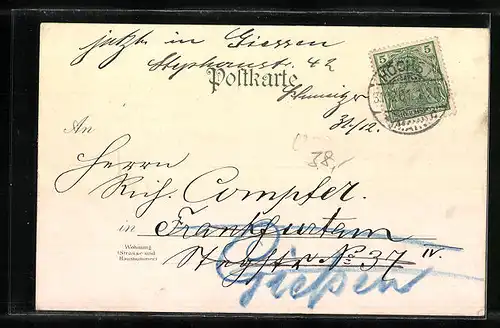 jetzt in Giessen
Stephanst. 42
Postkarte
5 5
HÖCHST
31/12.
An
38,-
Herrn
Rich. Compter.
in Frankfurtam
Wohnung
(Strasse und
Hausnummer)
Nº 37 IV.
Gießen